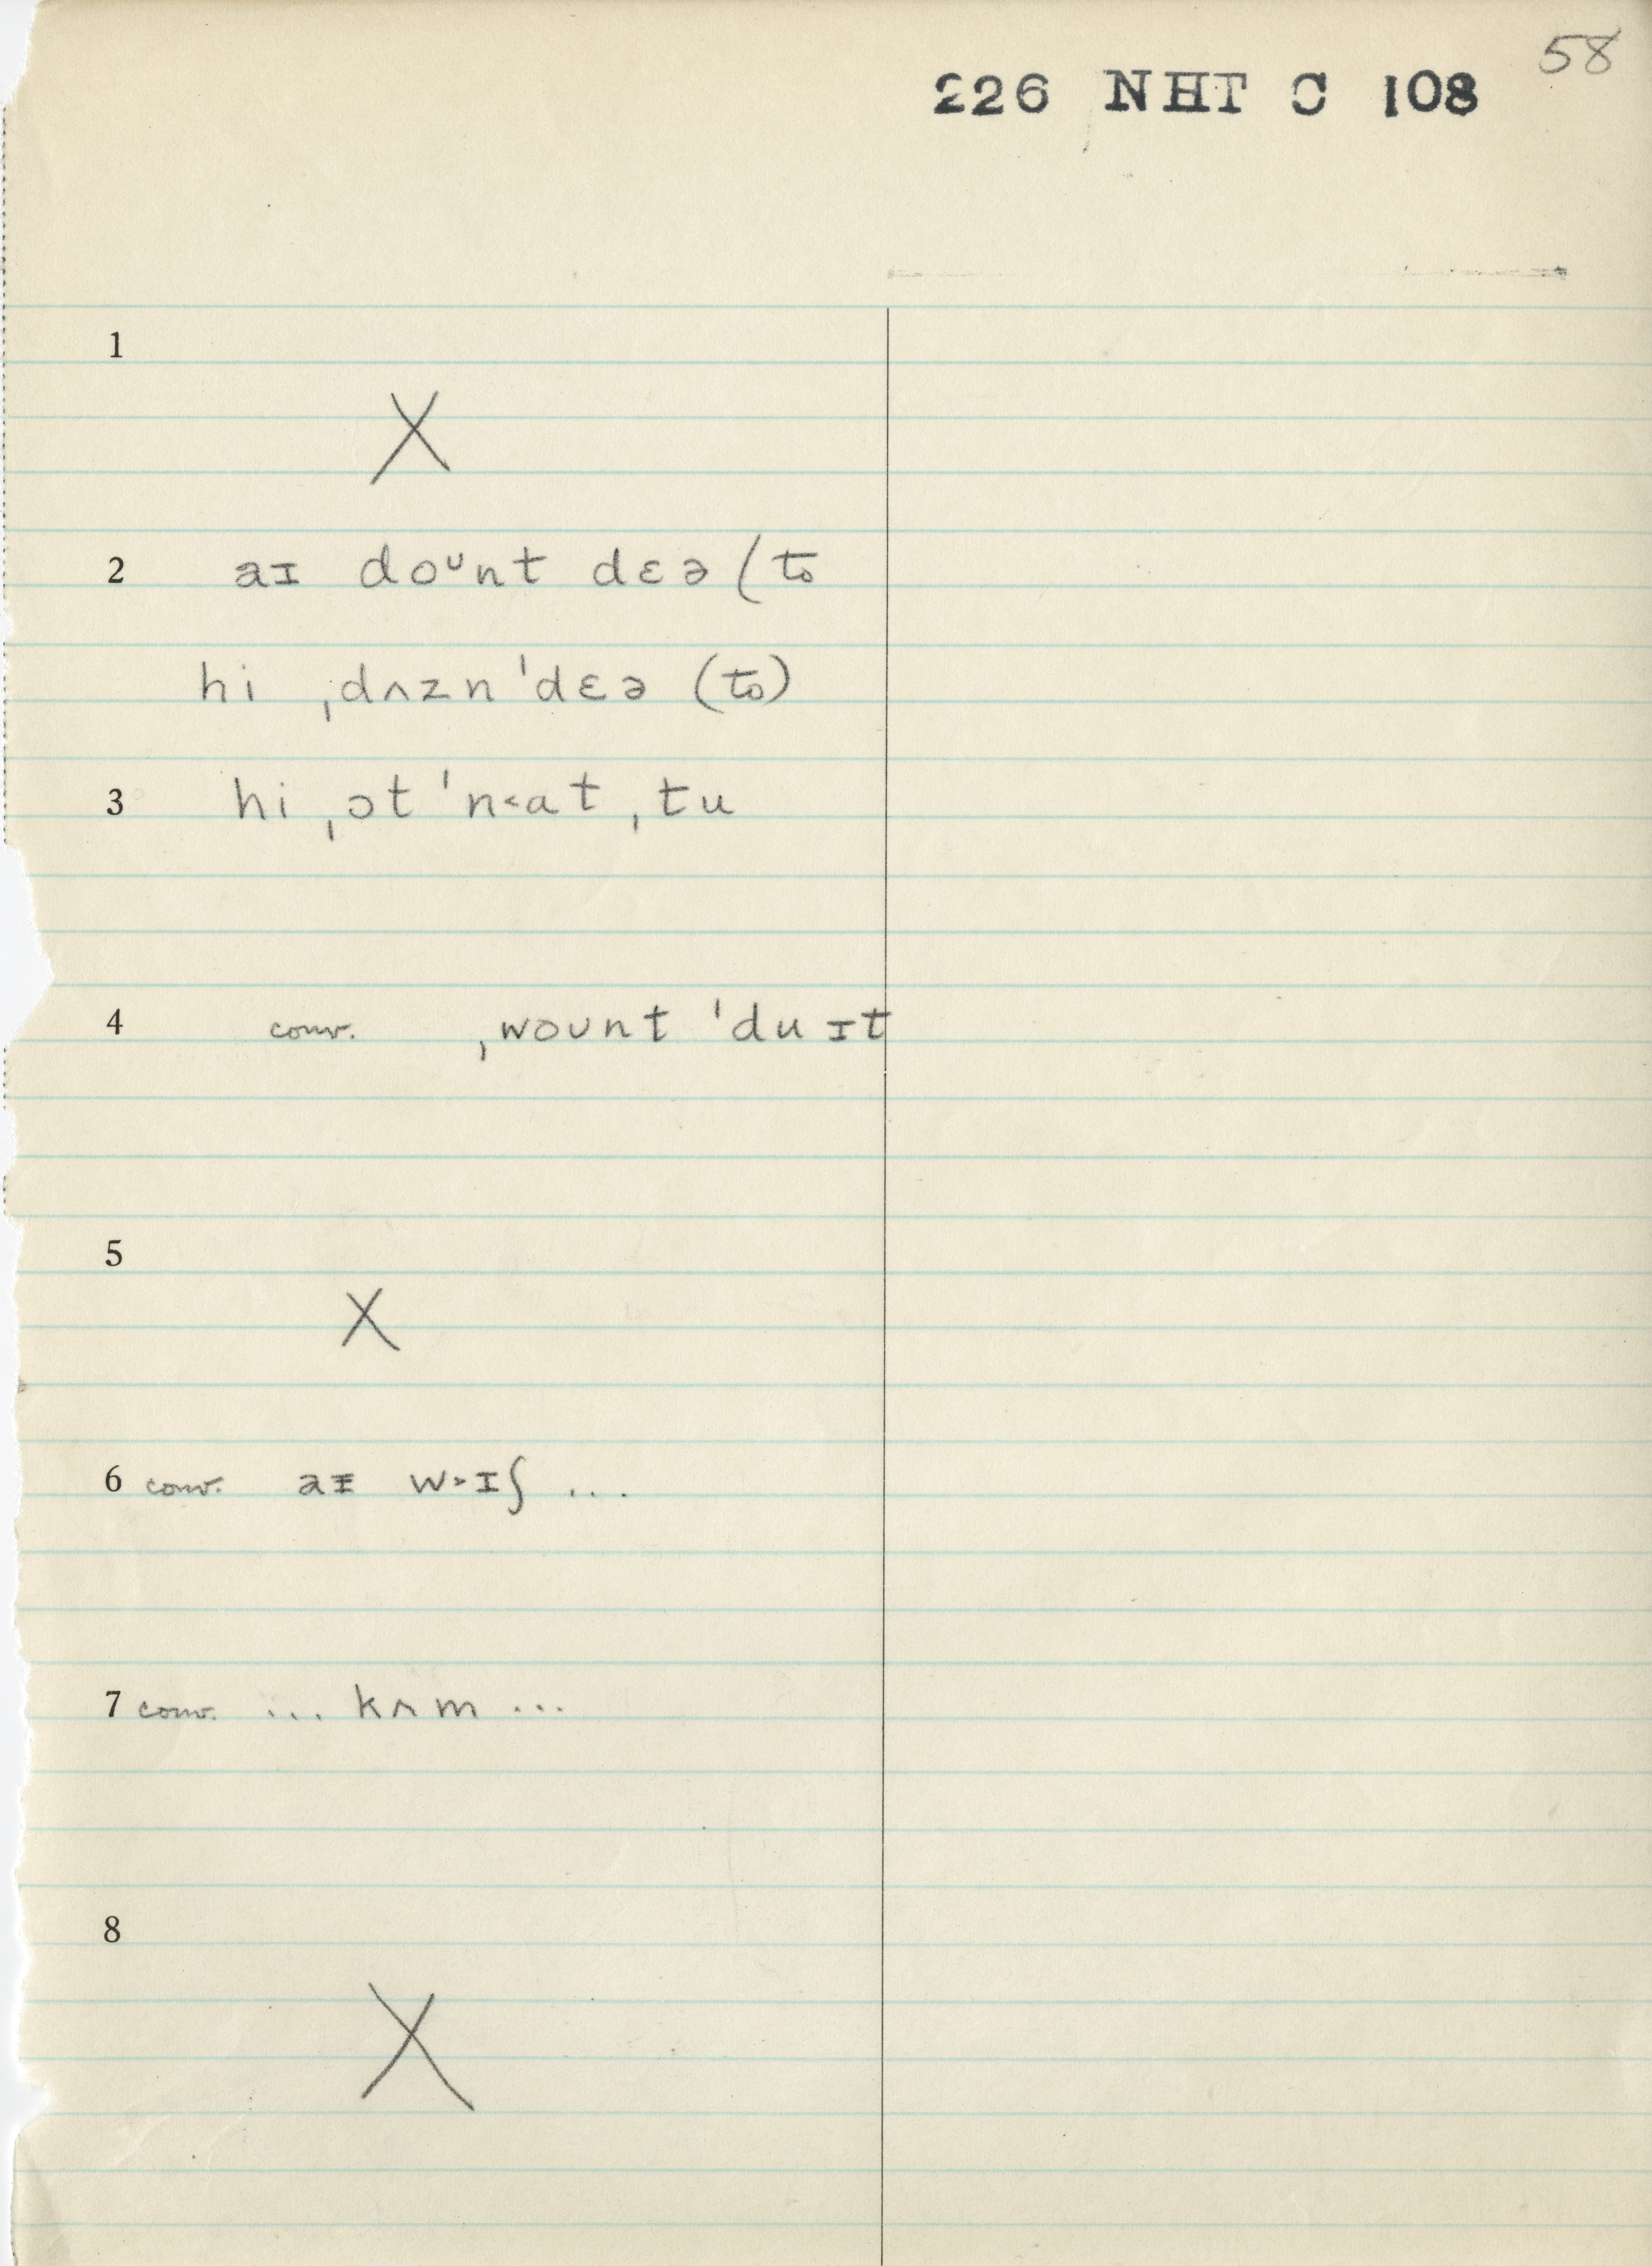 58
226 NHT C 108
1
X
2 aɪ doᶷnt dɛə (to
hi ˌdʌzn ˈdɛə (to)
3 hi ˌɔt ˈn˂at ˌtu
4 conv. ˌwoʊnt ˈdu ɪt
5
X
6 conv. aᵻ w˃ɪʃ ...
7 conv. ... kʌm ...
8
X